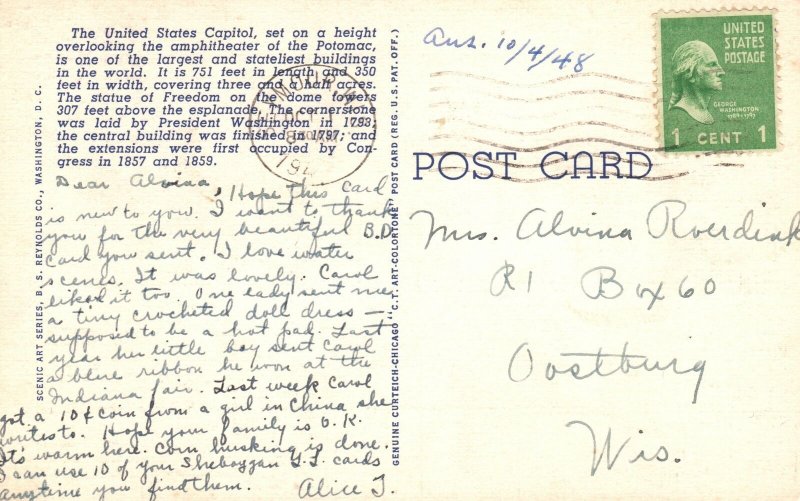 The United States Capitol, set on a height
overlooking the amphitheater of the Potomac,
is one of the largest and stateliest buildings
in the world. It is 751 feet in length and 350
feet in width, covering three and a half acres.
The statue of Freedom on the dome towers
307 feet above the esplanade. The cornerstone
was laid by President Washington in 1793;
the central building was finished in 1797; and
the extensions were first occupied by Con-
gress in 1857 and 1859.
Dear Alvina, Hope this card
is new to you. I want to thank
you for the very beautiful B.D.
card you sent. I love water
scenes. It was lovely. Carol
liked it too. One lady sent me
a tiny crocheted doll dress —
supposed to be a hot pad. Last
year her little boy sent Carol
a blue ribbon he won at the
Indiana fair. Last week Carol
got a 10¢ coin from a girl in China she
writes to. Hope your family is O.K.
It's warm here. Corn husking is done.
I can use 10 of your Sheboygan cards
anytime you find them. Alice T.
SCENIC ART SERIES, B. S. REYNOLDS CO., WASHINGTON, D. C.
GENUINE CURTEICH-CHICAGO "C.T. ART-COLORTONE" POST CARD (REG. U.S. PAT. OFF.)
Ans. 10/4/48
UNITED
STATES
POSTAGE
GEORGE
WASHINGTON
1789-1797
1 CENT 1
POST CARD
Mrs. Alvina Roerdink
R1 Box 60
Oostburg
Wis.